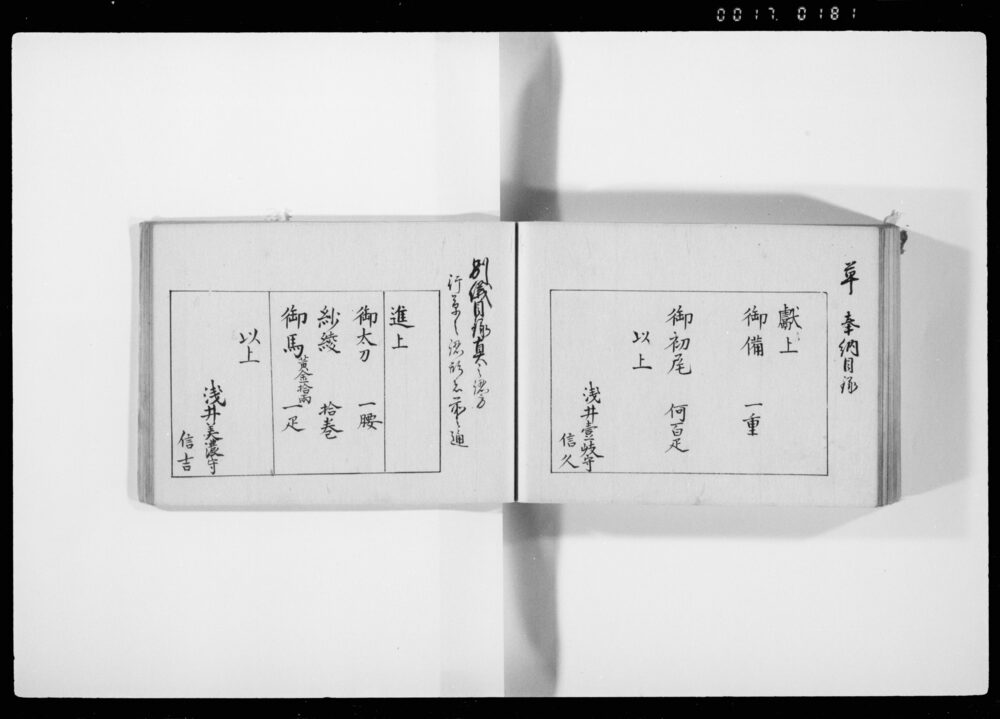 0017 0181
草 奉納目録
獻上
御備 一重
御初尾 何百疋
以上
浅井壹岐守
信久
別儀目録真之認方
行草之認形も右之通
進上
御太刀 一腰
紗綾 拾巻
御馬 黄金拾兩 一疋
以上
浅井美濃守
信吉